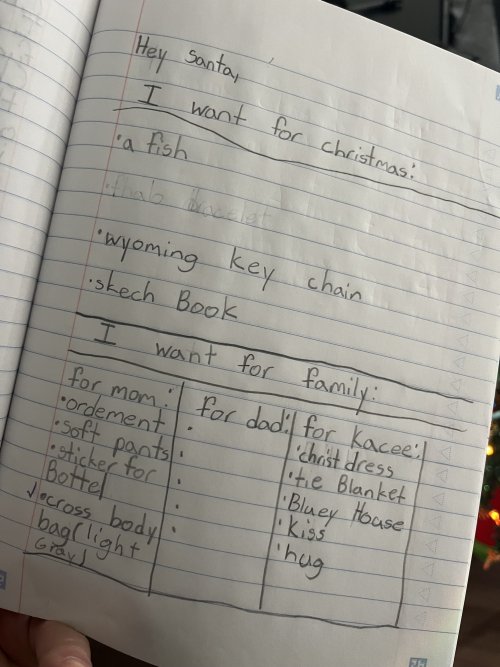 Hey Santa,
I want for christmas:
• a fish
bracelet
• wyoming key chain
• skech Book
I want for family:
for mom:
• ordement
• soft pants
• sticker for
Bottel
✓ • cross body
bag (light
Gray)
for dad:
•
•
•
•
•
for kacee:
• christ dress
• tie Blanket
• Bluey House
• kiss
• hug